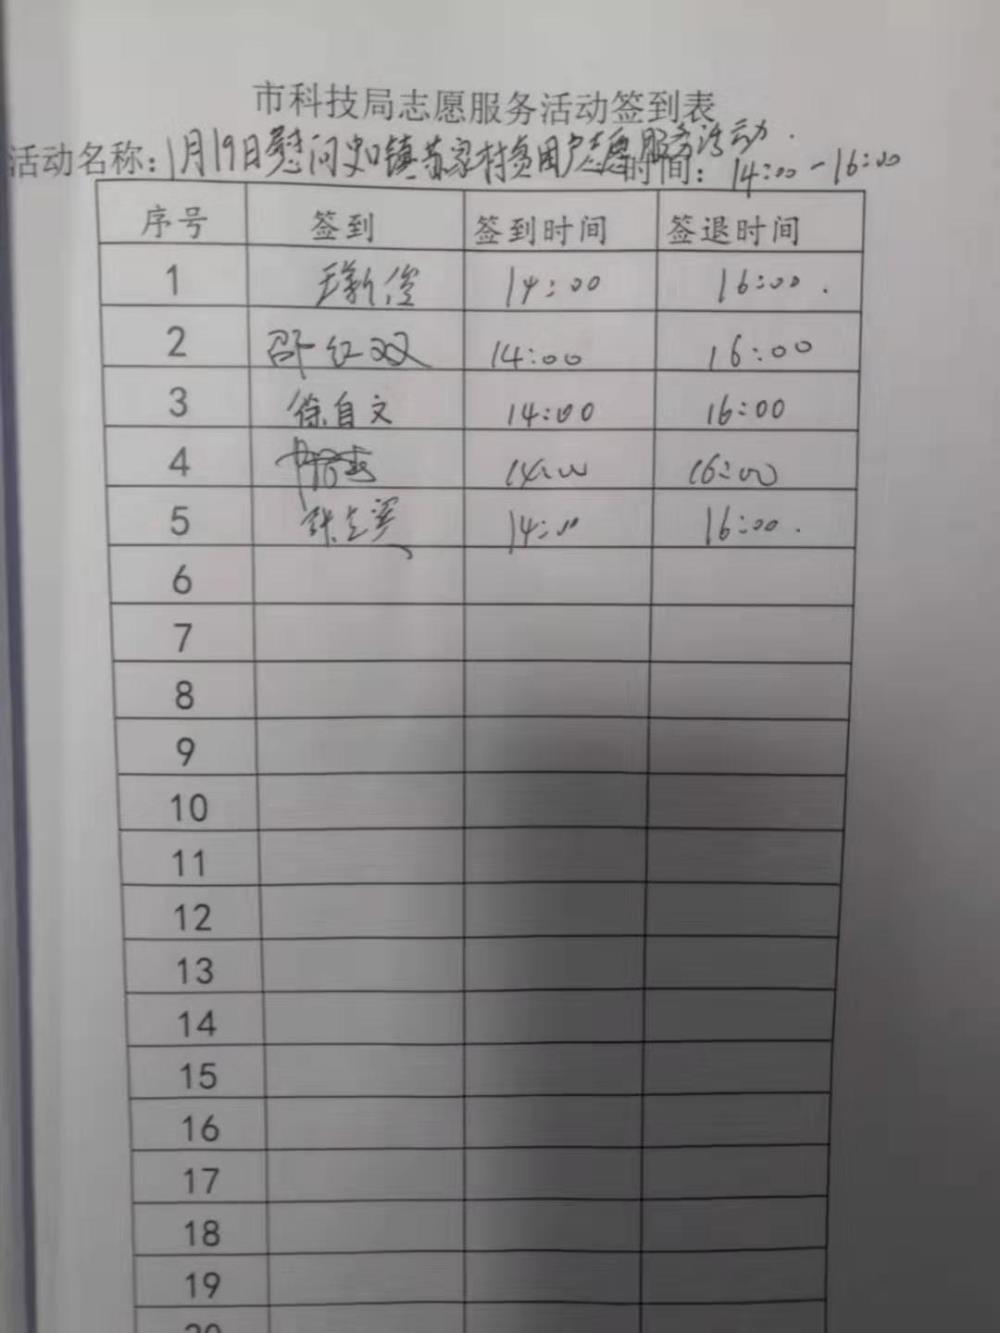 市科技局志愿服务活动签到表
活动名称：1月19日慰问史口镇苏家村贫困户志愿服务活动
时间：14:00-16:00
序号 签到 签到时间 签退时间
1 14:00 16:00
2 邵红双 14:00 16:00
3 徐自文 14:00 16:00
4 14:00 16:00
5 14:00 16:00
6
7
8
9
10
11
12
13
14
15
16
17
18
19
20